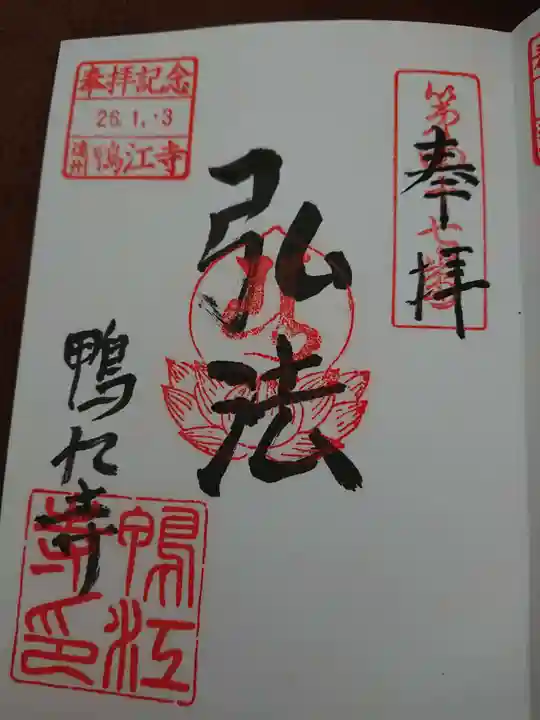 奉拝
弘法
鴨江寺
奉拝記念
26.1.-3
遠州
鴨江寺
鴨江寺印